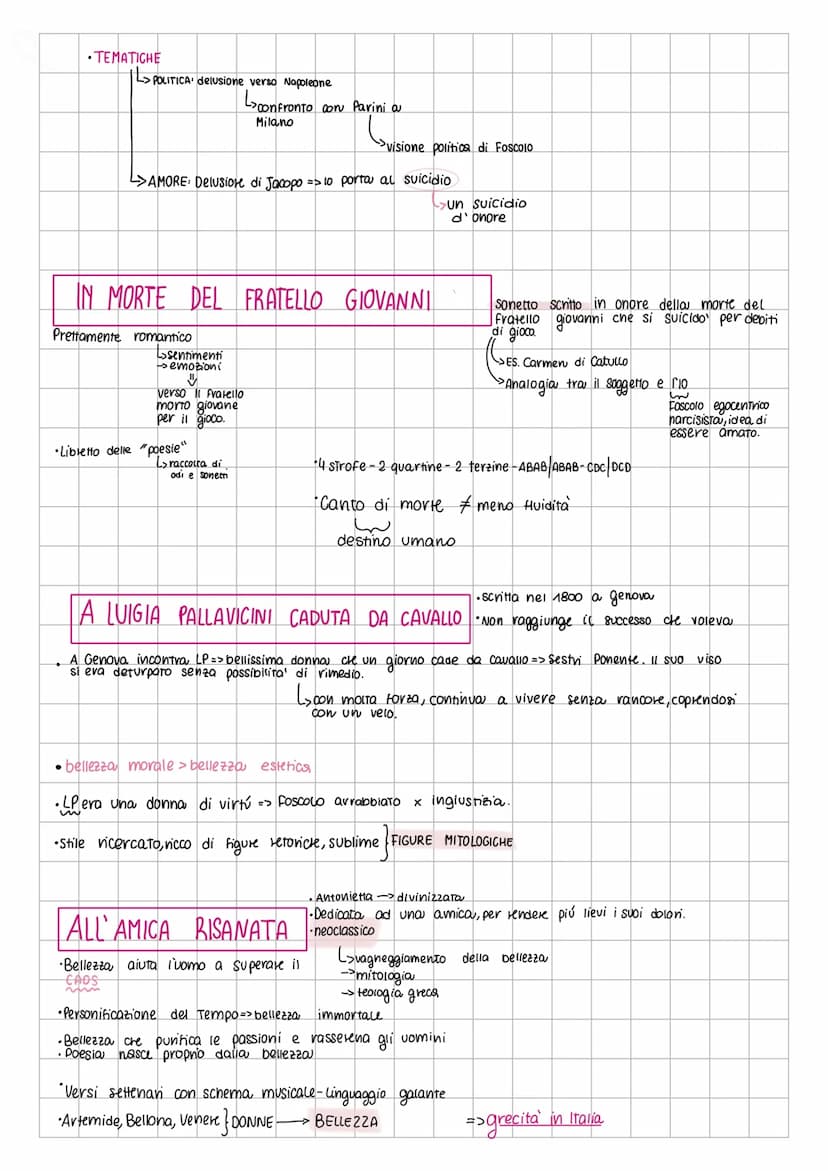 • TEMATICHE
↳ POLITICA: delusione verso Napoleone
↳ confronto con Parini a
Milano
↳ visione politica di Foscolo
↳ AMORE: Delusione di Jacopo => lo porta al suicidio
↳ un suicidio
d'onore
IN MORTE DEL FRATELLO GIOVANNI
Sonetto scritto in onore della morte del
fratello giovanni che si suicido' per debiti
di gioco
Prettamente romantico
↳ sentimenti
→ emozioni
⇓
verso il fratello
morto giovane
per il gioco.
↳ ES. Carmen di Catullo
→ Analogia tra il soggetto e l'io
Foscolo egocentrico
narcisista, idea di
essere amato.
• Libretto delle "poesie"
↳ raccolta di
odi e sonetti
• 4 strofe - 2 quartine - 2 terzine - ABAB/ABAB - CDC/DCD
• Canto di morte ≠ meno fluidità
destino umano
A LUIGIA PALLAVICINI CADUTA DA CAVALLO
• scritta nel 1800 a Genova
• Non raggiunge il successo che voleva
• A Genova incontra LP => bellissima donna che un giorno cade da cavallo => Sestri Ponente. Il suo viso
si era deturpato senza possibilita' di rimedio.
↳ con molta forza, continua a vivere senza rancore, coprendosi
con un velo.
• bellezza morale > bellezza estetica
• LP era una donna di virtú => Foscolo arrabbiato x ingiustizia.
• Stile ricercato, ricco di figure retoriche, sublime } FIGURE MITOLOGICHE
ALL'AMICA RISANATA
• Antonietta → divinizzata
• Dedicata ad una amica, per rendere piú lievi i suoi dolori.
• neoclassico
↳ vagneggiamento della bellezza
→ mitologia
→ teologia greca
• Bellezza aiuta l'uomo a superare il
CAOS
• Personificazione del Tempo => bellezza immortale
• Bellezza che purifica le passioni e rasserena gli uomini
• Poesia nasce proprio dalla bellezza
• Versi settenari con schema musicale - linguaggio galante
• Artemide, Bellona, Venere } DONNE → BELLEZZA => grecita' in Italia